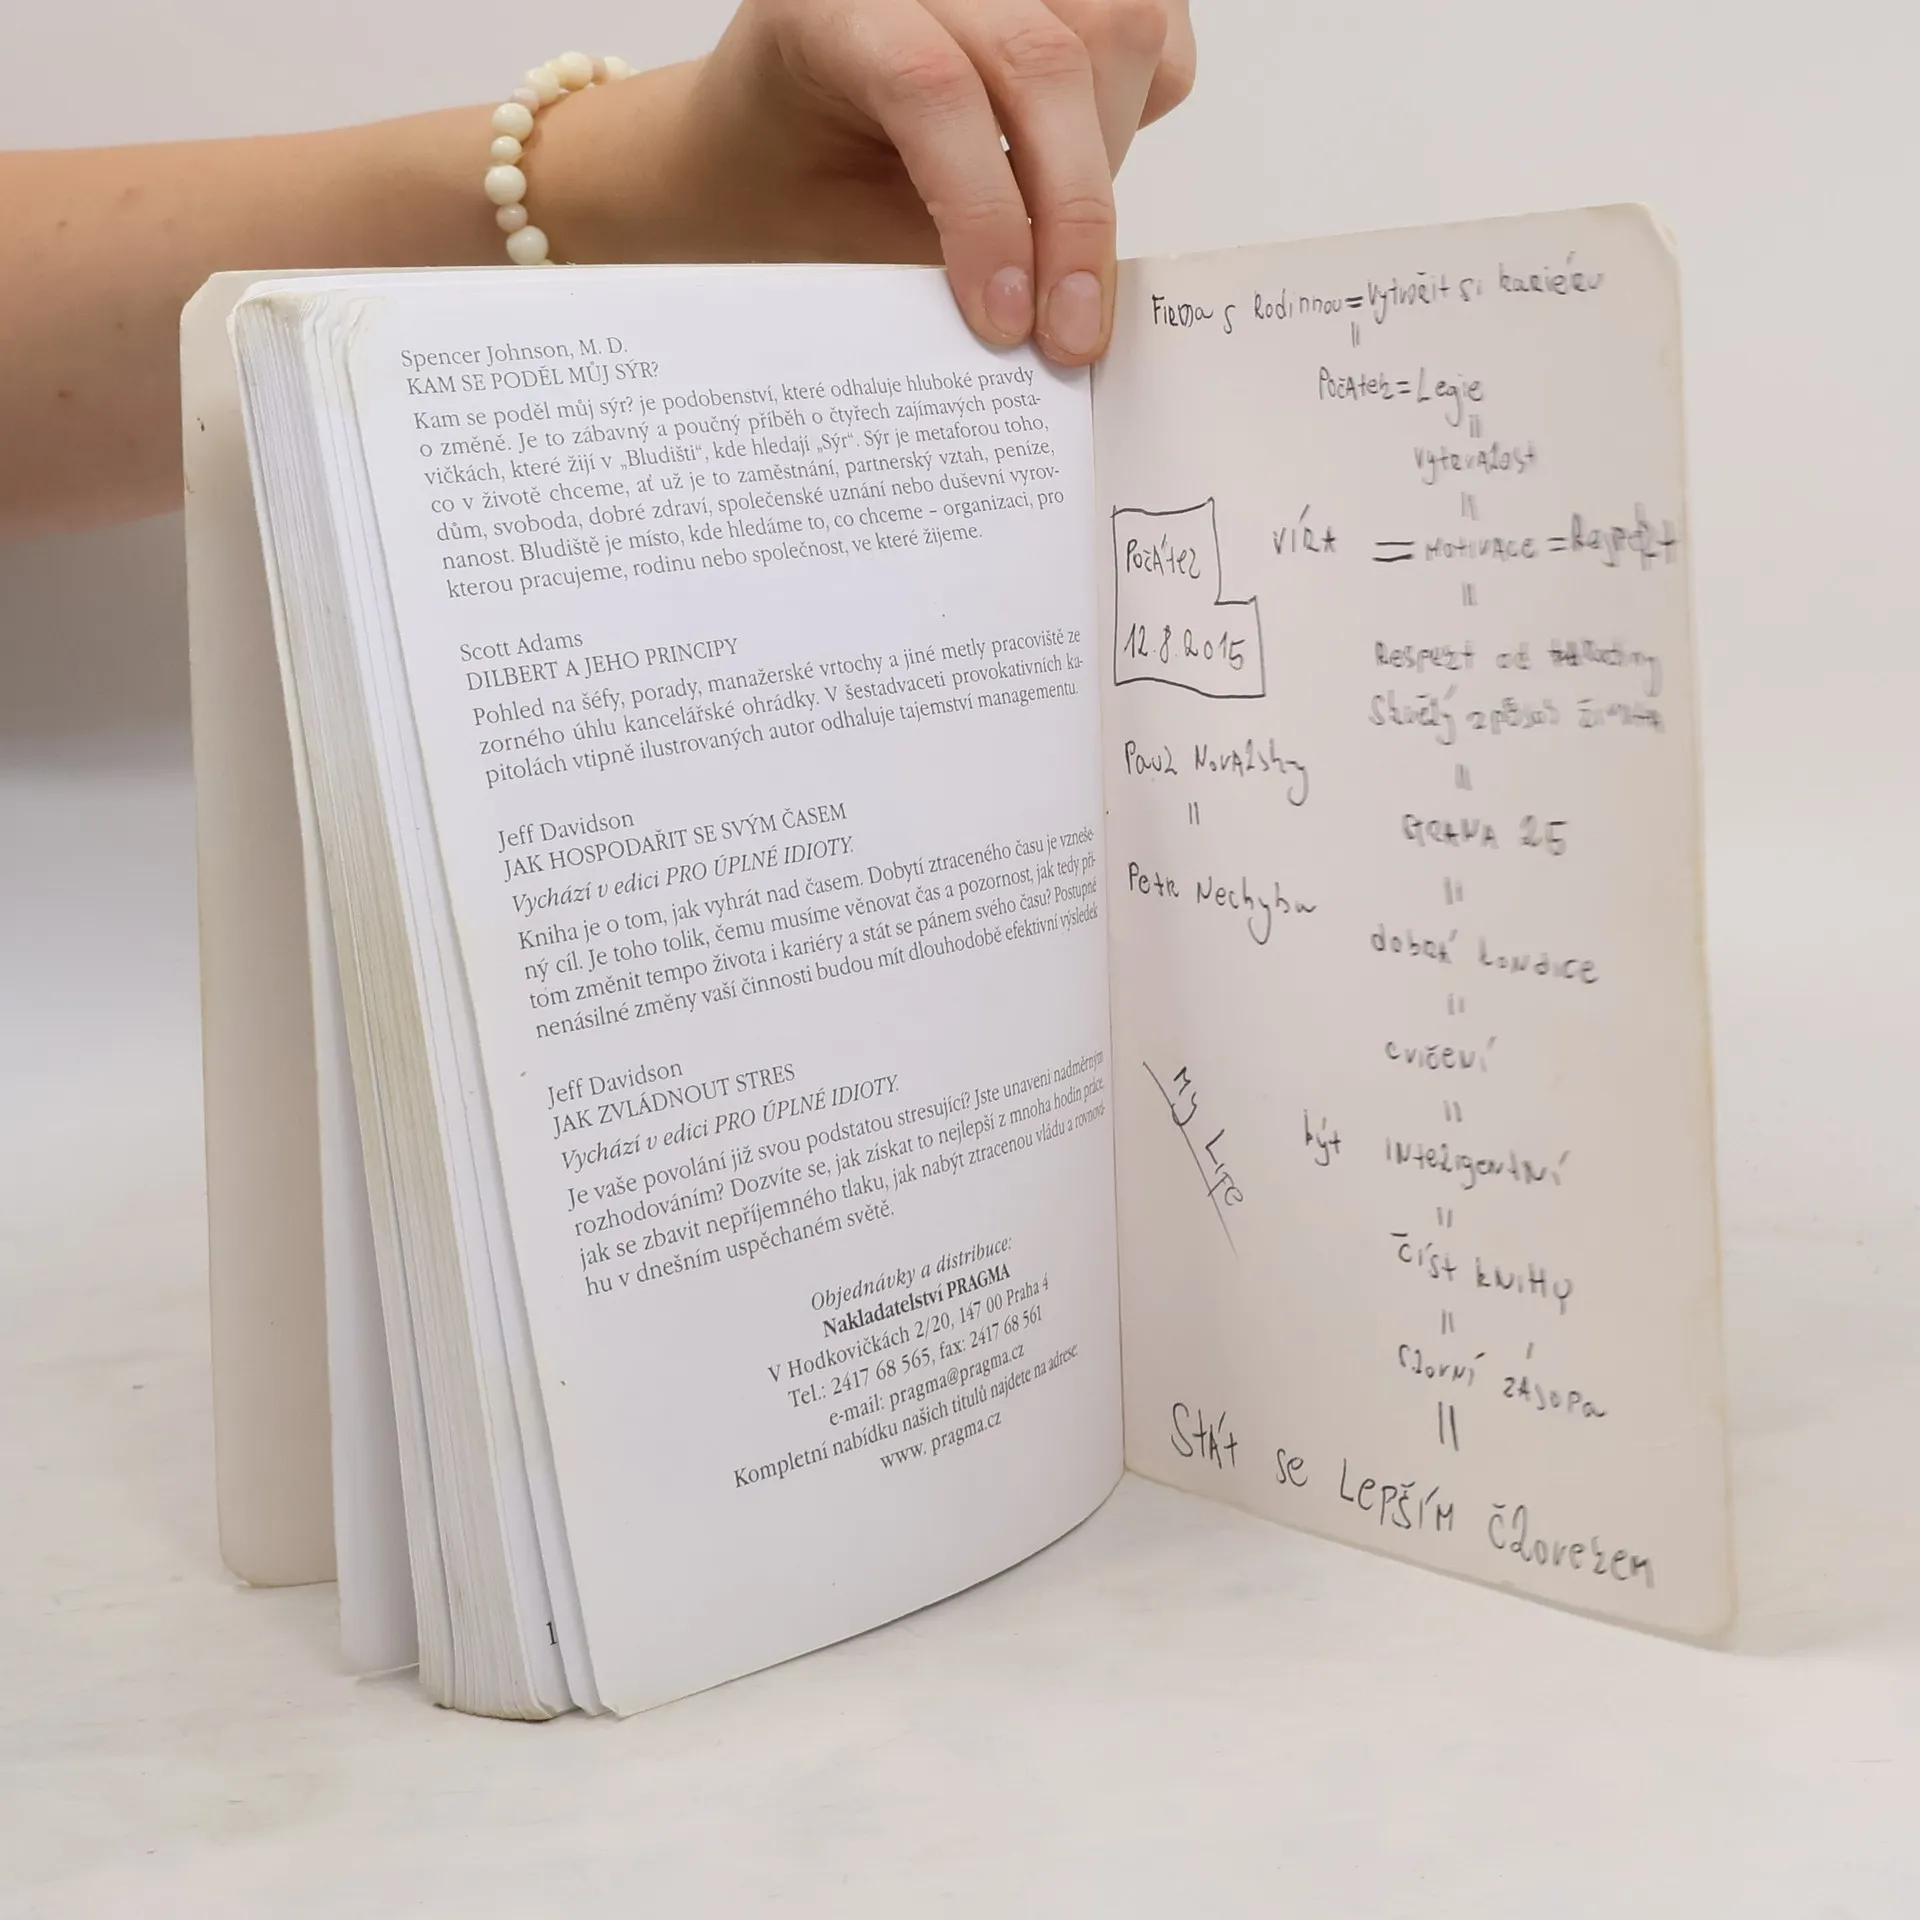 Spencer Johnson, M. D.
KAM SE PODĚL MŮJ SÝR?
Kam se poděl můj sýr? je podobenství, které odhaluje hluboké pravdy
o změně. Je to zábavný a poučný příběh o čtyřech zajímavých posta-
vičkách, které žijí v „Bludišti“, kde hledají „Sýr“. Sýr je metaforou toho,
co v životě chceme, ať už je to zaměstnání, partnerský vztah, peníze,
dům, svoboda, dobré zdraví, společenské uznání nebo duševní vyrov-
nanost. Bludiště je místo, kde hledáme to, co chceme – organizaci, pro
kterou pracujeme, rodinu nebo společnost, ve které žijeme.
Scott Adams
DILBERT A JEHO PRINCIPY
Pohled na šéfy, porady, manažerské vrtochy a jiné metly pracoviště ze
zorného úhlu kancelářské ohrádky. V šestadvaceti provokativních ka-
pitolách vtipně ilustrovaných autor odhaluje tajemství managementu.
Jeff Davidson
JAK HOSPODAŘIT SE SVÝM ČASEM
Vychází v edici PRO ÚPLNÉ IDIOTY.
Kniha je o tom, jak vyhrát nad časem. Dobytí ztraceného času je vzneše-
ný cíl. Je toho tolik, čemu musíme věnovat čas a pozornost, jak tedy při-
tom změnit tempo života i kariéry a stát se pánem svého času? Postupné
nenásilné změny vaší činnosti budou mít dlouhodobě efektivní výsledek
Jeff Davidson
JAK ZVLÁDNOUT STRES
Vychází v edici PRO ÚPLNÉ IDIOTY.
Je vaše povolání již svou podstatou stresující? Jste unaveni nadměrným
rozhodováním? Dozvíte se, jak získat to nejlepší z mnoha hodin práce,
jak se zbavit nepříjemného tlaku, jak nabýt ztracenou vládu a rovnová-
hu v dnešním uspěchaném světě.
Objednávky a distribuce:
Nakladatelství PRAGMA
V Hodkovičkách 2/20, 147 00 Praha 4
Tel.: 2417 68 565, fax: 2417 68 561
e-mail: pragma@pragma.cz
Kompletní nabídku našich titulů najdete na adrese:
www. pragma.cz
1
Firma s Rodinnou = Vytvořit si kariéru
=
Počátek = Legie
=
vytrvalost
=
VÍRA = MOTIVACE = Respekt
=
Počátek
12.8.2015
Respekt od Rodiny
Skvělý způsob života
=
Paul Novalshy
=
Petr Nechyba
GRANA 25
=
dobrá kondice
=
cvičení
=
být inteligentní
=
číst knihy
=
slovní zásoba
=
My Life
Stát se lepším člověkem